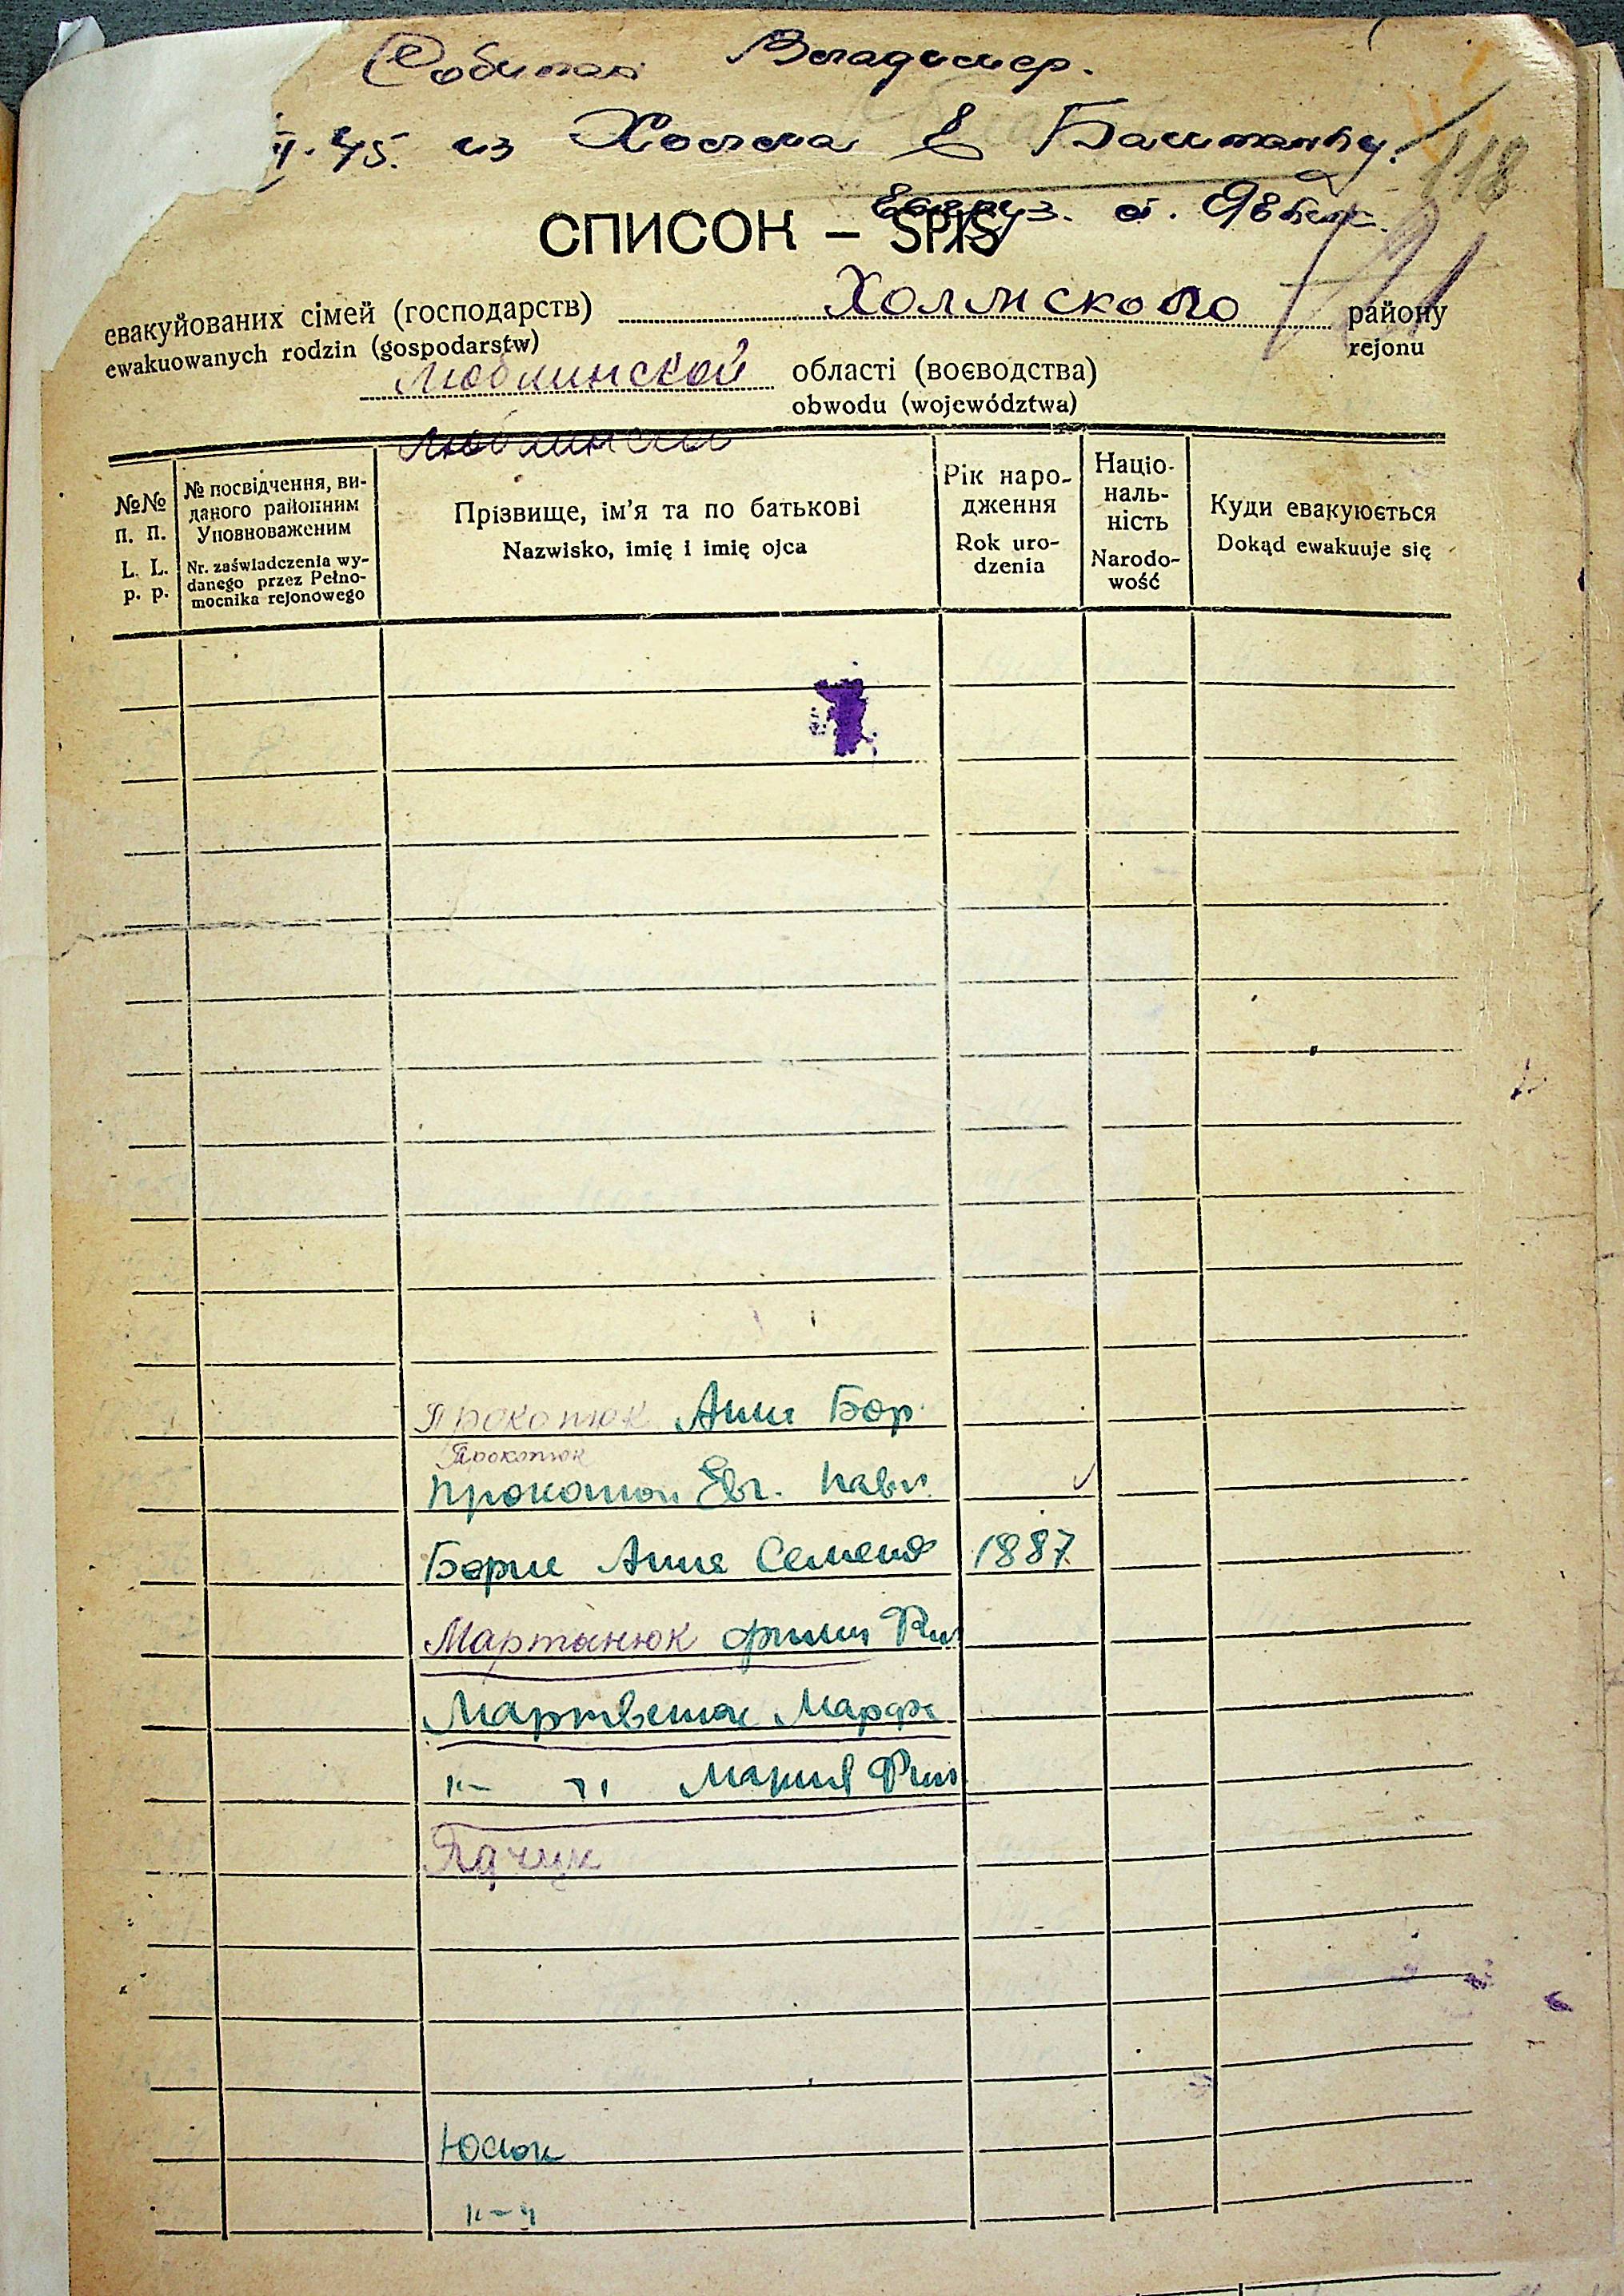 Владимер.
45. из Холма в Баштанку.
118
СПИСОК – SPIS
евакуйованих сімей (господарств) Холмского району
ewakuowanych rodzin (gospodarstw) rejonu
Люблинской області (воєводства)
obwodu (województwa)
№№ п. п. L. L. p. p.
№ посвідчення, виданого районним Уповноваженим
Nr. zaświadczenia wydanego przez Pełnomocnika rejonowego
Прізвище, ім'я та по батькові
Nazwisko, imię i imię ojca
Рік народження
Rok urodzenia
Національність
Narodowość
Куди евакуюється
Dokąd ewakuuje się
Прокопюк Анна Бор
Прокопюк
Прокопюк Евг. Павл.
Анна Семено 1887
Мартанюк Филип
Марфа
Мария
Юсюк